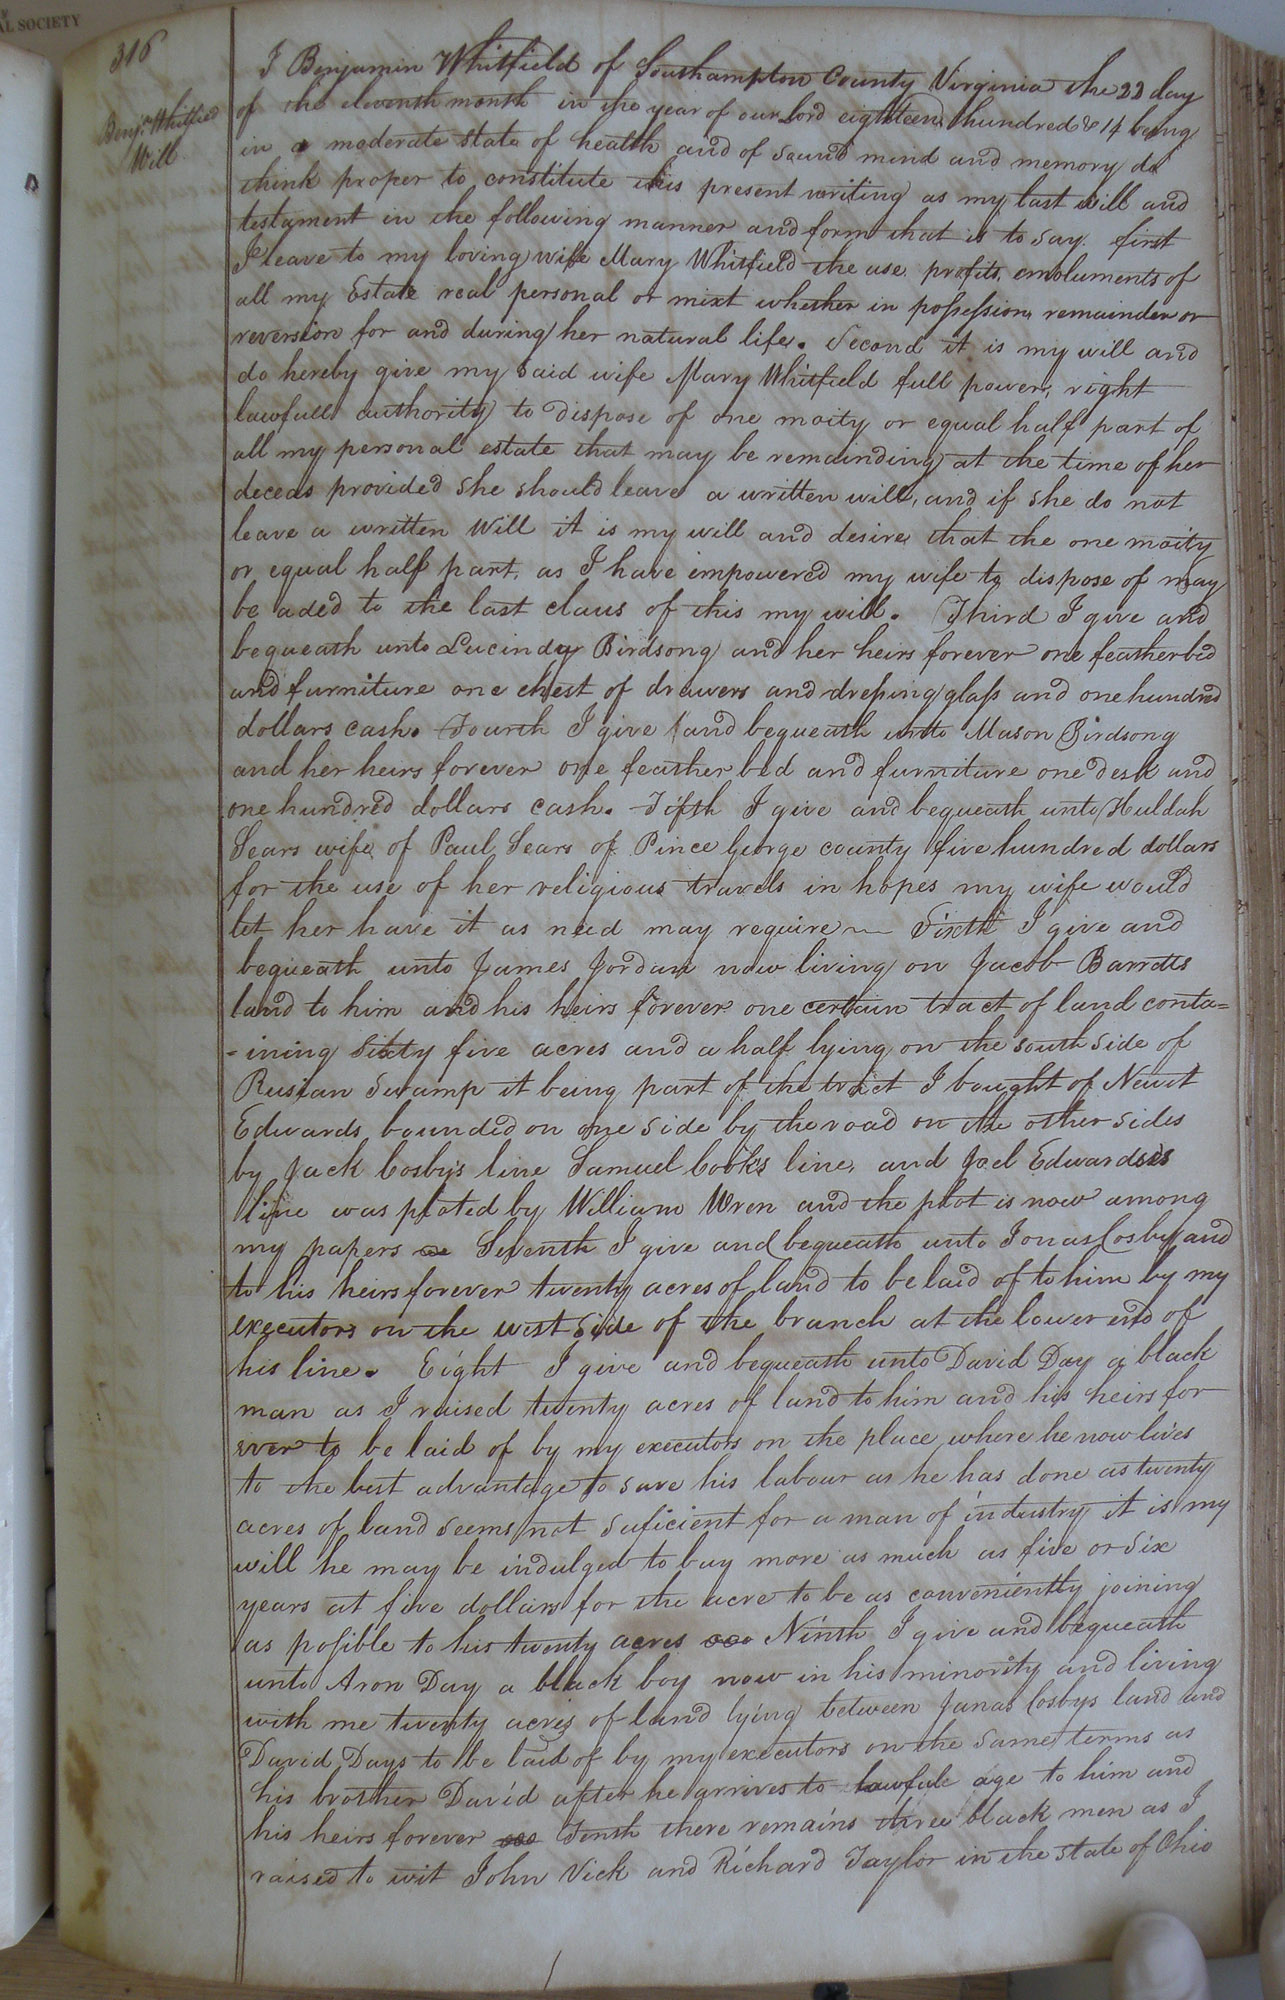 AL SOCIETY
316
Benjn Whitfied
Will
I Benjamin Whitfield of Southampton County Virginia the 22 day
of the eleventh month in the year of our Lord eighteen hundred & 14 being
in a moderate state of health and of sound mind and memory do
think proper to constitute this present writing as my last will and
testament in the following manner and form that is to say. first
I leave to my loving wife Mary Whitfield the use profits, emoluments of
all my Estate real personal or mixt whether in possession remainder or
reversion for and during her natural life. Second it is my will and
do hereby give my said wife Mary Whitfield full power, right
lawfull authority to dispose of one moity or equal half part of
all my personal estate that may be remainding at the time of her
deceas provided she should leave a written will, and if she do not
leave a written Will it is my will and desire that the one moity
or equal half part, as I have empowered my wife to dispose of may
be aded to the last claus of this my will. Third I give and
bequeath unto Lucinday Birdsong and her heirs forever one featherbed
and furniture one chest of drawers and dressing glass and one hundred
dollars cash. Fourth I give and bequeath unto Mason Birdsong
and her heirs forever one feather bed and furniture one desk and
one hundred dollars cash. Fifth I give and bequeath unto Huldah
Sears wife of Paul Sears of Pince George county five hundred dollars
for the use of her religious travels in hopes my wife would
let her have it as need may require Sixth I give and
bequeath unto James Jordan now living on Jacob Barretts
land to him and his heirs forever one certain tract of land conta=
-ining Sixty five acres and a half lying on the south side of
Rusian Swamp it being part of the tract I bought of Newit
Edwards bounded on one side by the road on the other sides
by Jack Cosby's line Samuel Cooks line, and Joel Edwardses
line was ploted by William Wren and the plot is now among
my papers Seventh I give and bequeath unto Jonas Cosby and
to his heirs forever twenty acres of land to be laid of to him by my
executors on the west Side of the branch at the lower end of
his line. Eight I give and bequeath unto David Day a black
man as I raised twenty acres of land to him and his heirs for
ever to be laid of by my executors on the place where he now lives
to the best advantage to save his labour as he has done as twenty
acres of land seems not suficient for a man of industry it is my
will he may be indulged to buy more as much as five or six
years at five dollars for the acre to be as conveniently joining
as posible to his twenty acres Ninth I give and bequeath
unto Aron Day a black boy now in his minority and living
with me twenty acres of land lying between Janas Cosbys land and
David Days to be laid of by my executors on the same terms as
his brother David after he arrives to lawfule age to him and
his heirs forever Tenth there remains three black men as I
raised to wit John Vick and Richard Taylor in the state of Ohio